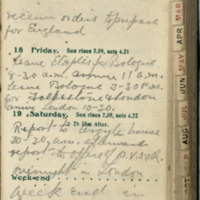 receive orders to prepare
for England
18 Friday. Sun rises 7.09, sets 4.21
Leave Etaples for Bologne
8-30 a.m. arrive 11 a.m.
leave Bologne 3-30 P.M.
for Folkestone & London
arrive London 10-30.
19 Saturday. Sun rises, sets 4.22
7h 26m After.
Report to Argyle house
10-30 a.m. afterwards
report to office of
overnight in London
Week-end
week end in
MAR
APR
MAY
JUN
JUL
AUG
OCT